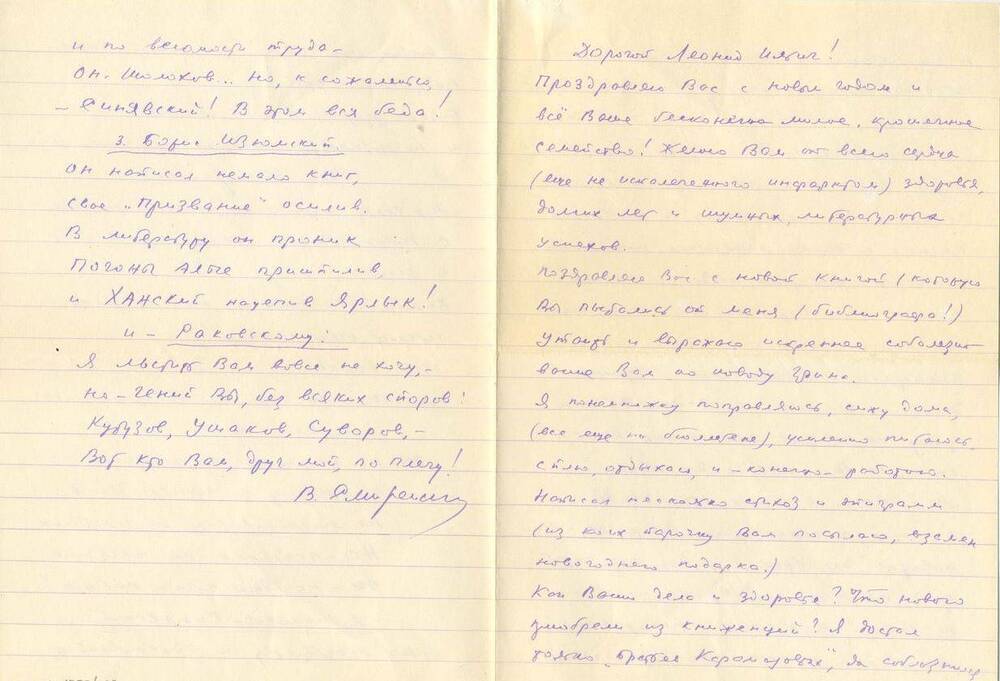 Дорогой Леонид Ильич!
Проздравляю Вас с новым годом и
всё Ваше бесконечно милое, крошечное
семейство! Желаю Вам от всего сердца
(еще не искалеченного инфарктом) здоровья,
долгих лет и шумных литературных
успехов.
Поздравляю Вас с новой книгой (которую
Вы пытались от меня (библиографа!)
утаить и выражаю искреннее соболезно-
вание Вам по поводу Грина.
Я понемножку поправляюсь, сижу дома,
(все еще на бюллетене), усиленно питаюсь,
сплю, отдыхаю, и – конечно – работаю.
Написал несколько стихов и эпиграмм
(из коих парочку Вам посылаю, взамен
новогоднего подарка.)
Как Ваши дела и здоровье? Что нового
из книженций? Я достал
только „Братьев Карамазовых",
и по вескости труда –
Он – Шолохов... Но, к сожаленью,
– Синявский! В этом вся беда!
3. Борис Изюмский.
Он написал немало книг,
свое „Призвание" осилив.
В литературу он проник
Погоны Алые пришпилив,
и ХАНский нацепив Ярлык!
и – Раковскому:
Я льстить Вам вовсе не хочу, –
но – гений Вы, без всяких споров!
Кутузов, Ушаков, Суворов, –
Вот кто Вам, друг мой, по плечу!
В